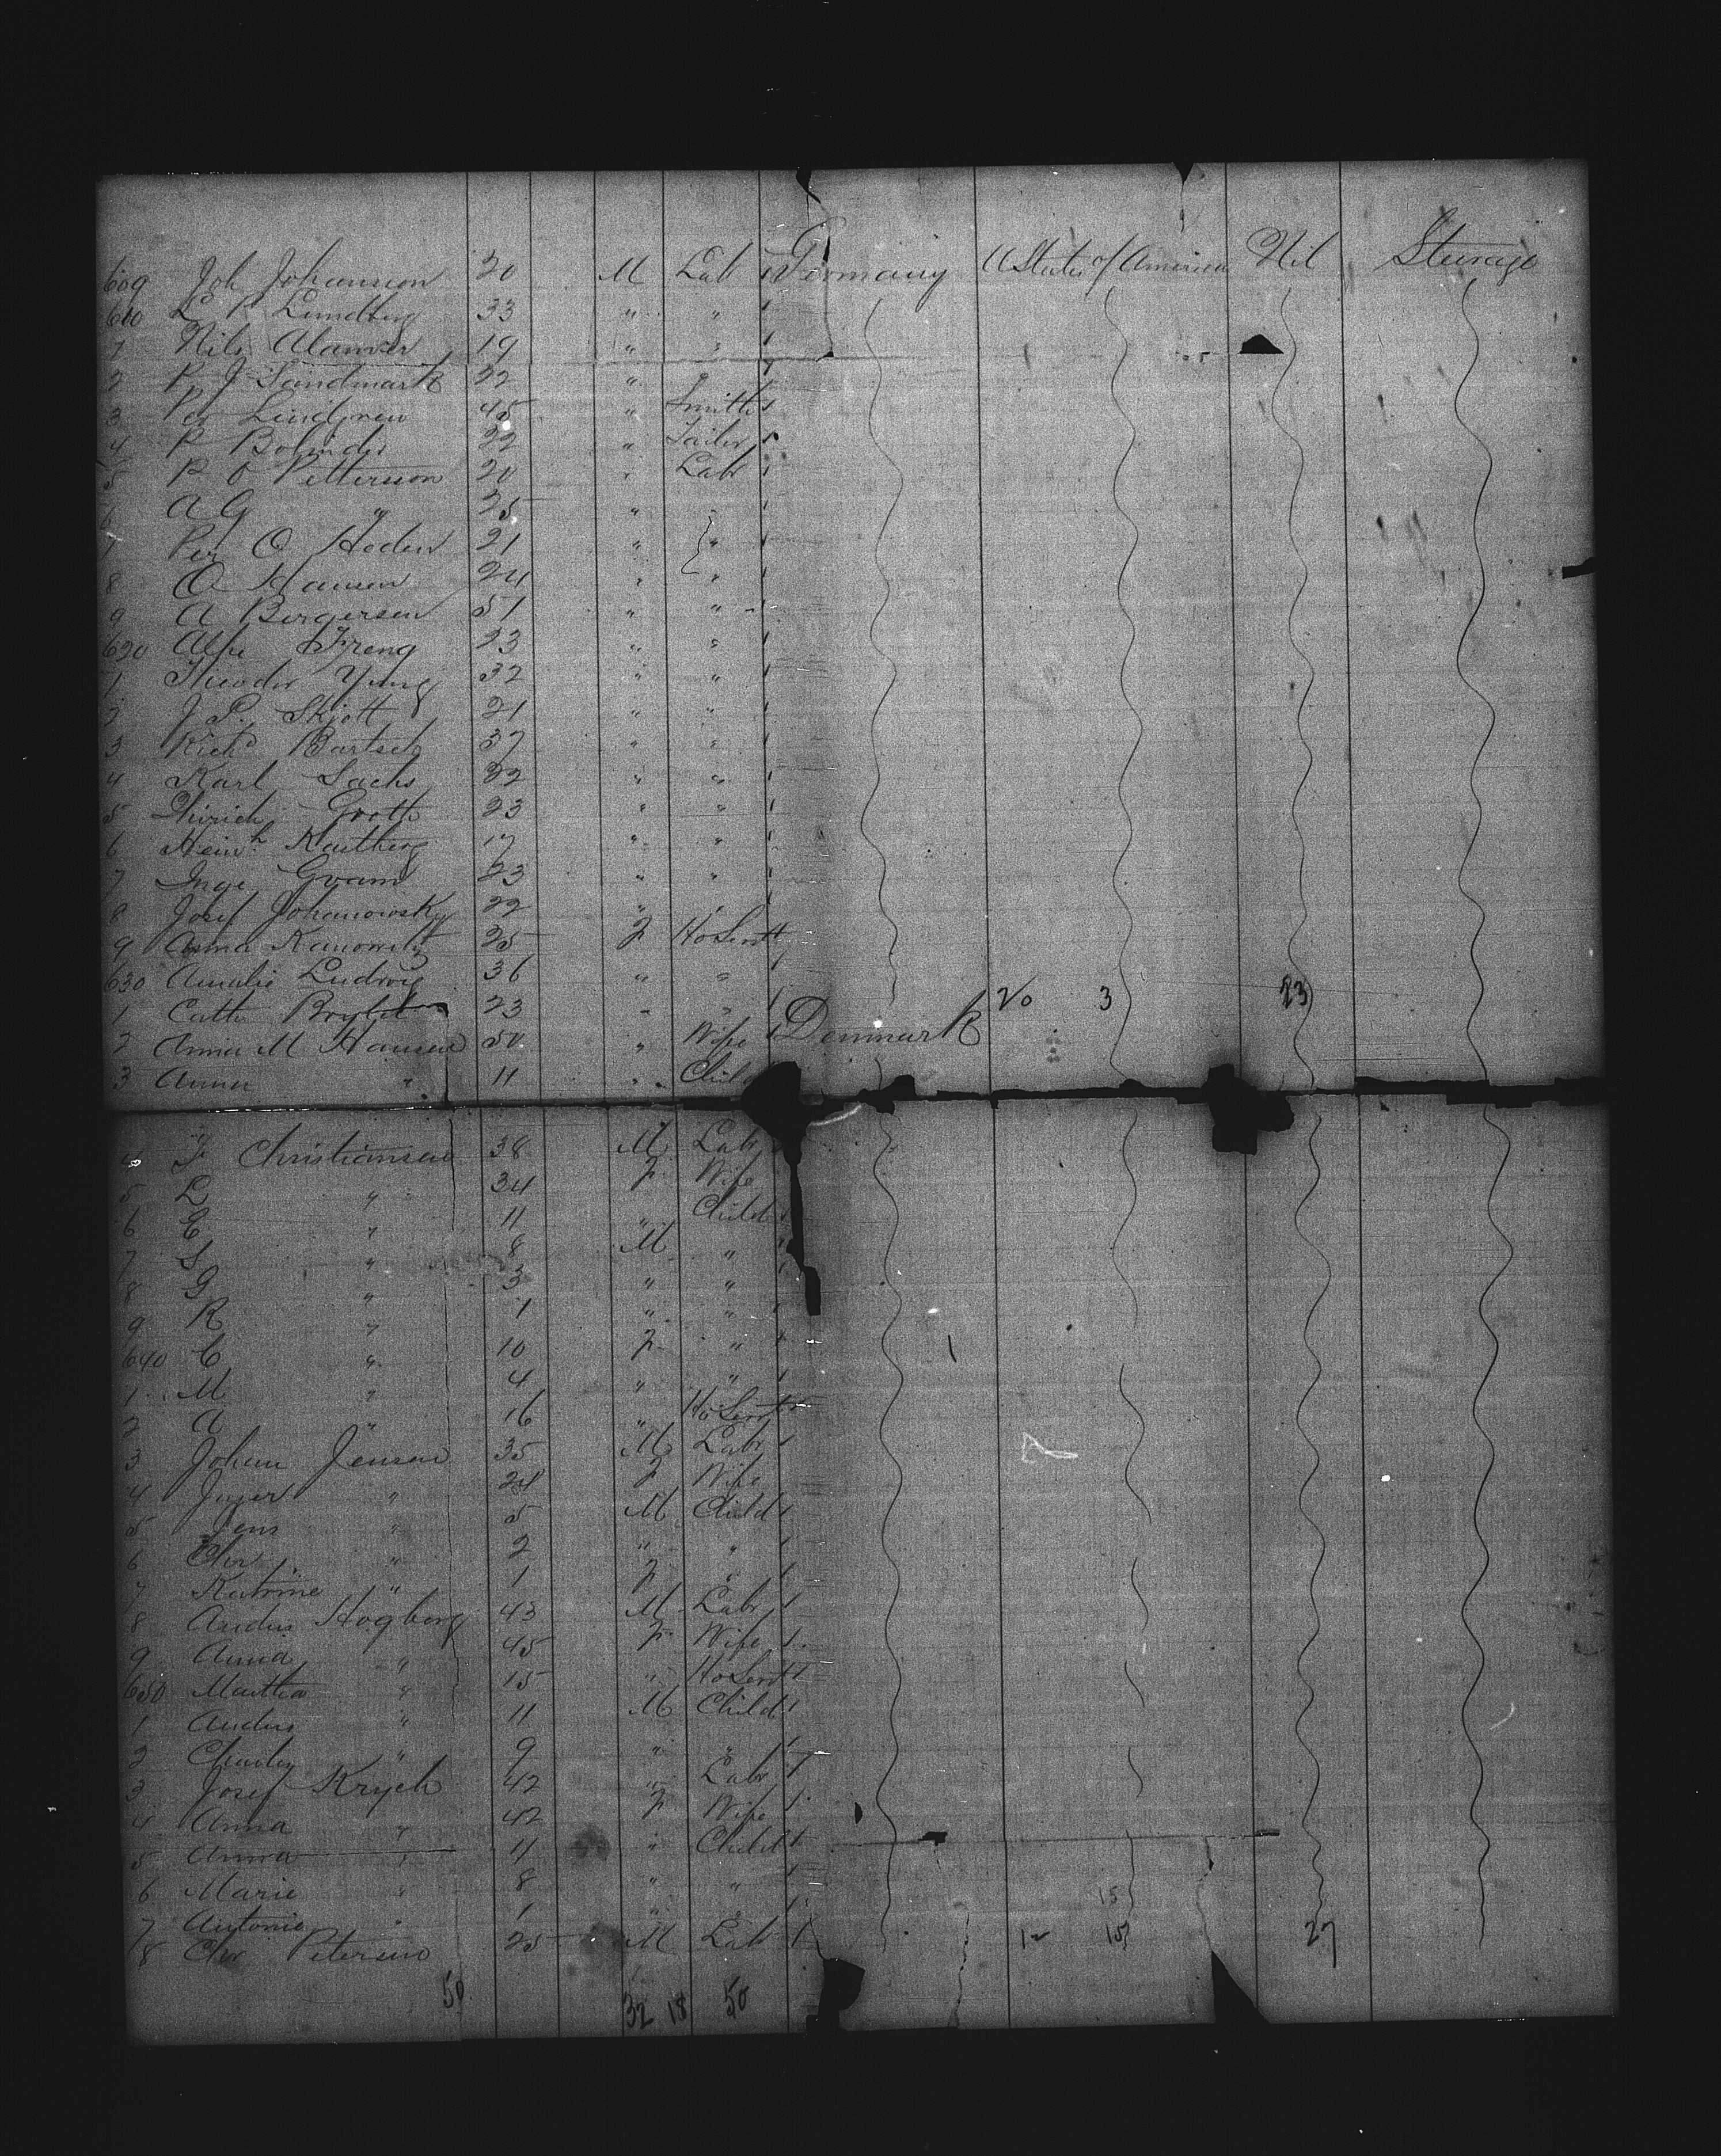 609 Joh Johannson 20 M Lab 1 Germany U States of America Nil Steerage
610 L P Lundberg 33 " " 1
1 Nils Alanver 19 " " 1
2 P J Sandmark 22 " " 1
3 Per Lindgren 45 " Smith 1
4 P Bolinder 22 " Tailor 1
5 P O Petterson 20 " Lab 1
6 A G " 25 " " 1
7 Per O Hoden 21 " " 1
8 O Hansen 24 " " 1
9 A Bergersen 51 " "
620 Alfr Freng 23 " " 1
1 Theodor Yung 32 " " 1
2 J P Skjott 21 " " 1
3 Richd Bartsch 37 " " 1
4 Karl Sachs 32 " " 1
5 Groth 23 " " 1
6 Heinh Kaltberg 17 " " 1
7 Inge Gvam 23 " " 1
8 Josef Johanowsky 22 " " 1
9 Anna Kanowitz 25 F Ho Servt 1
630 Amalie Ludwig 36 " " 1
1 Cath 23 " " 1 20 3 23
2 Anna M Hansen 50 " Wife 1 Denmark
3 Anna " 11 " Child
4 F Christiansen 38 M Labr
5 L " 34 F Wife
6 E " 11 " Child 1
7 S " 8 M " 1
8 G " 3 " " 1
9 R " 1 " " 1
640 C " 10 F " 1
1 M " 4 " " 1
2 A " 16 " Ho Servt 1
3 Johan Jensen 35 M Labr 1
4 Inger " 24 F Wife
5 Jens " 5 M Child 1
6 Chr " 2 " " 1
7 Katrine " 1 F " 1
8 Anders Hogberg 43 M Labr 1
9 Anna " 45 F Wife 1
650 Martha " 15 " Ho Servt 1
1 Anders " 11 M Child 1
2 Charley " 9 " " 1
3 Josef Krych 42 " Labr 1
4 Anna " 42 F Wife 1
5 Anna " 11 " Child 1
6 Marie " 8 " " 1
7 Antonie " 1 " " 1 15
8 Chr Petersen 25 M Lab 1 12 15 27
50 32 18 50